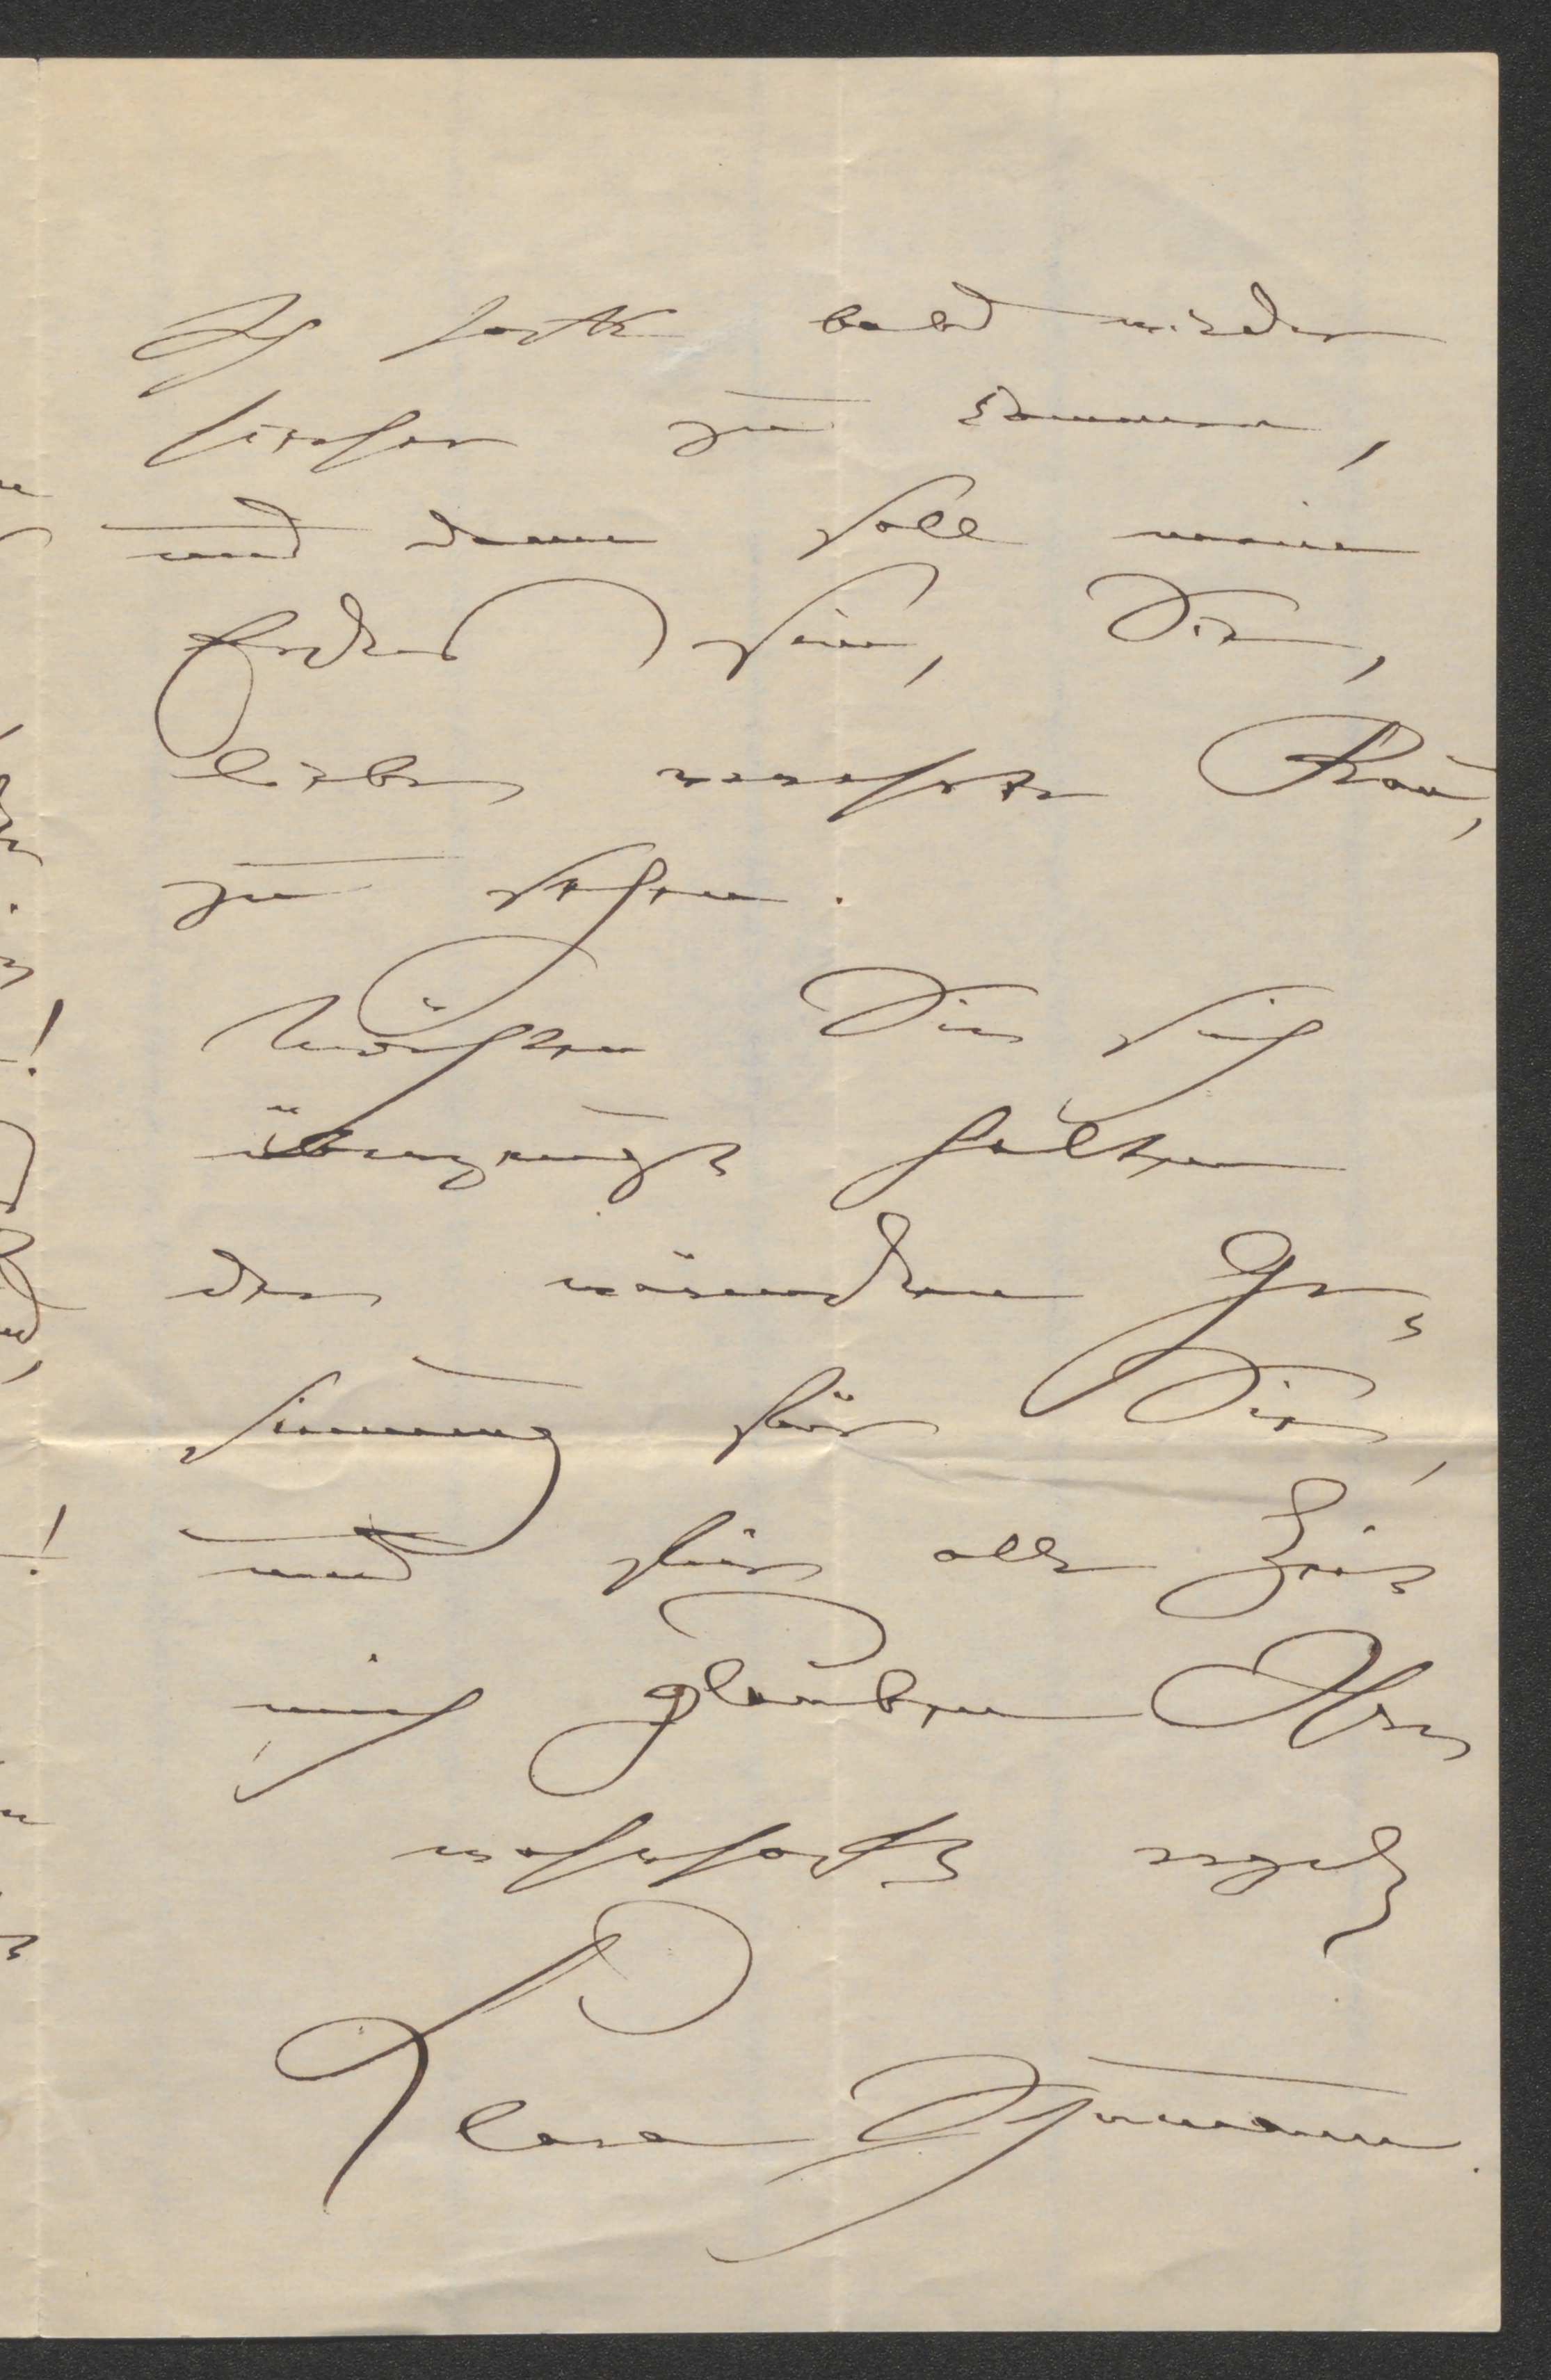 Ich hoffe bald wieder
hierher zu kommen,
und dann soll mein
Erstes sein, Sie,
liebe verehrte Frau,
zu sehen.
Möchten Sie sich
überzeugt halten
der wärmsten Ge-
sinnung für Sie,
und für alle Zeit
mich glauben Ihre
wahrhaft ergeb
Clara Schumann.